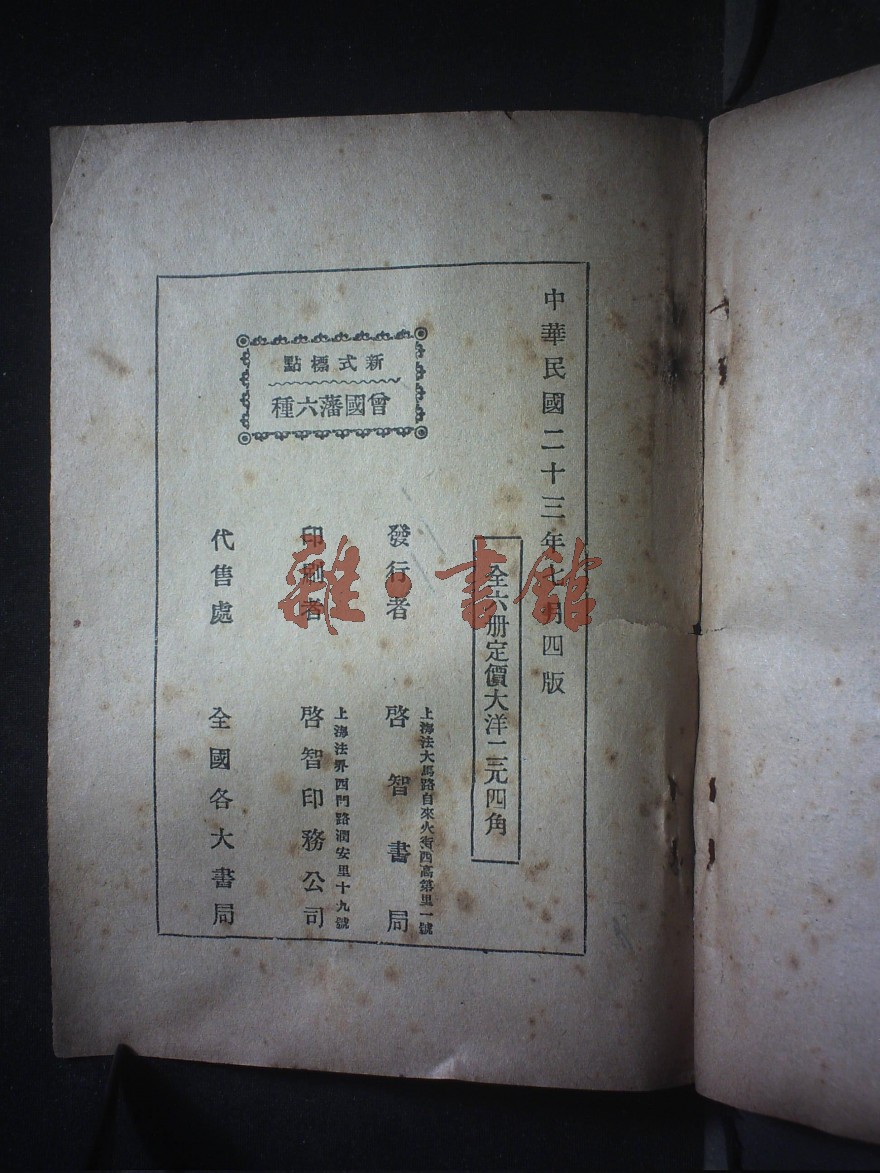 中華民國二十三年七月四版
全六册定價大洋二元四角
上海法大馬路自來火街西高第里一號
發行者 啓智書局
上海法界西門路潤安里十九號
印刷者 啓智印務公司
代售處 全國各大書局
新式標點
曾國藩六種
雜·書館